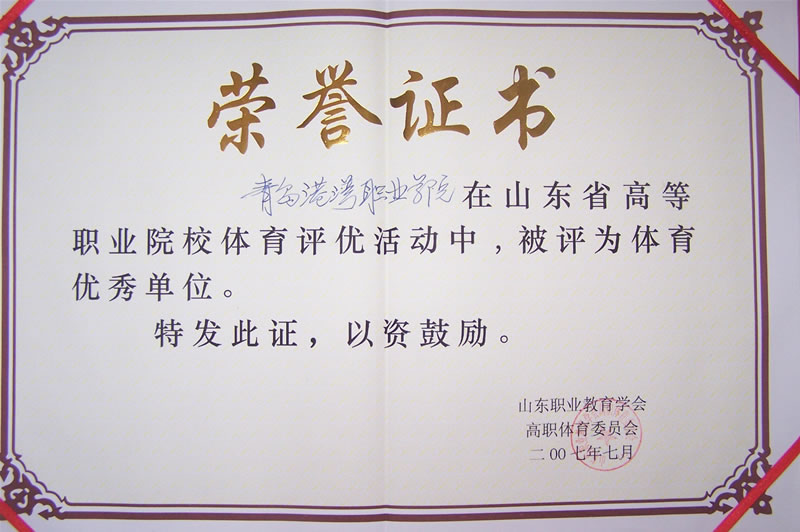 荣誉证书
青岛港湾职业学院在山东省高等
职业院校体育评优活动中，被评为体育
优秀单位。
特发此证，以资鼓励。
山东职业教育学会
高职体育委员会
二〇〇七年七月